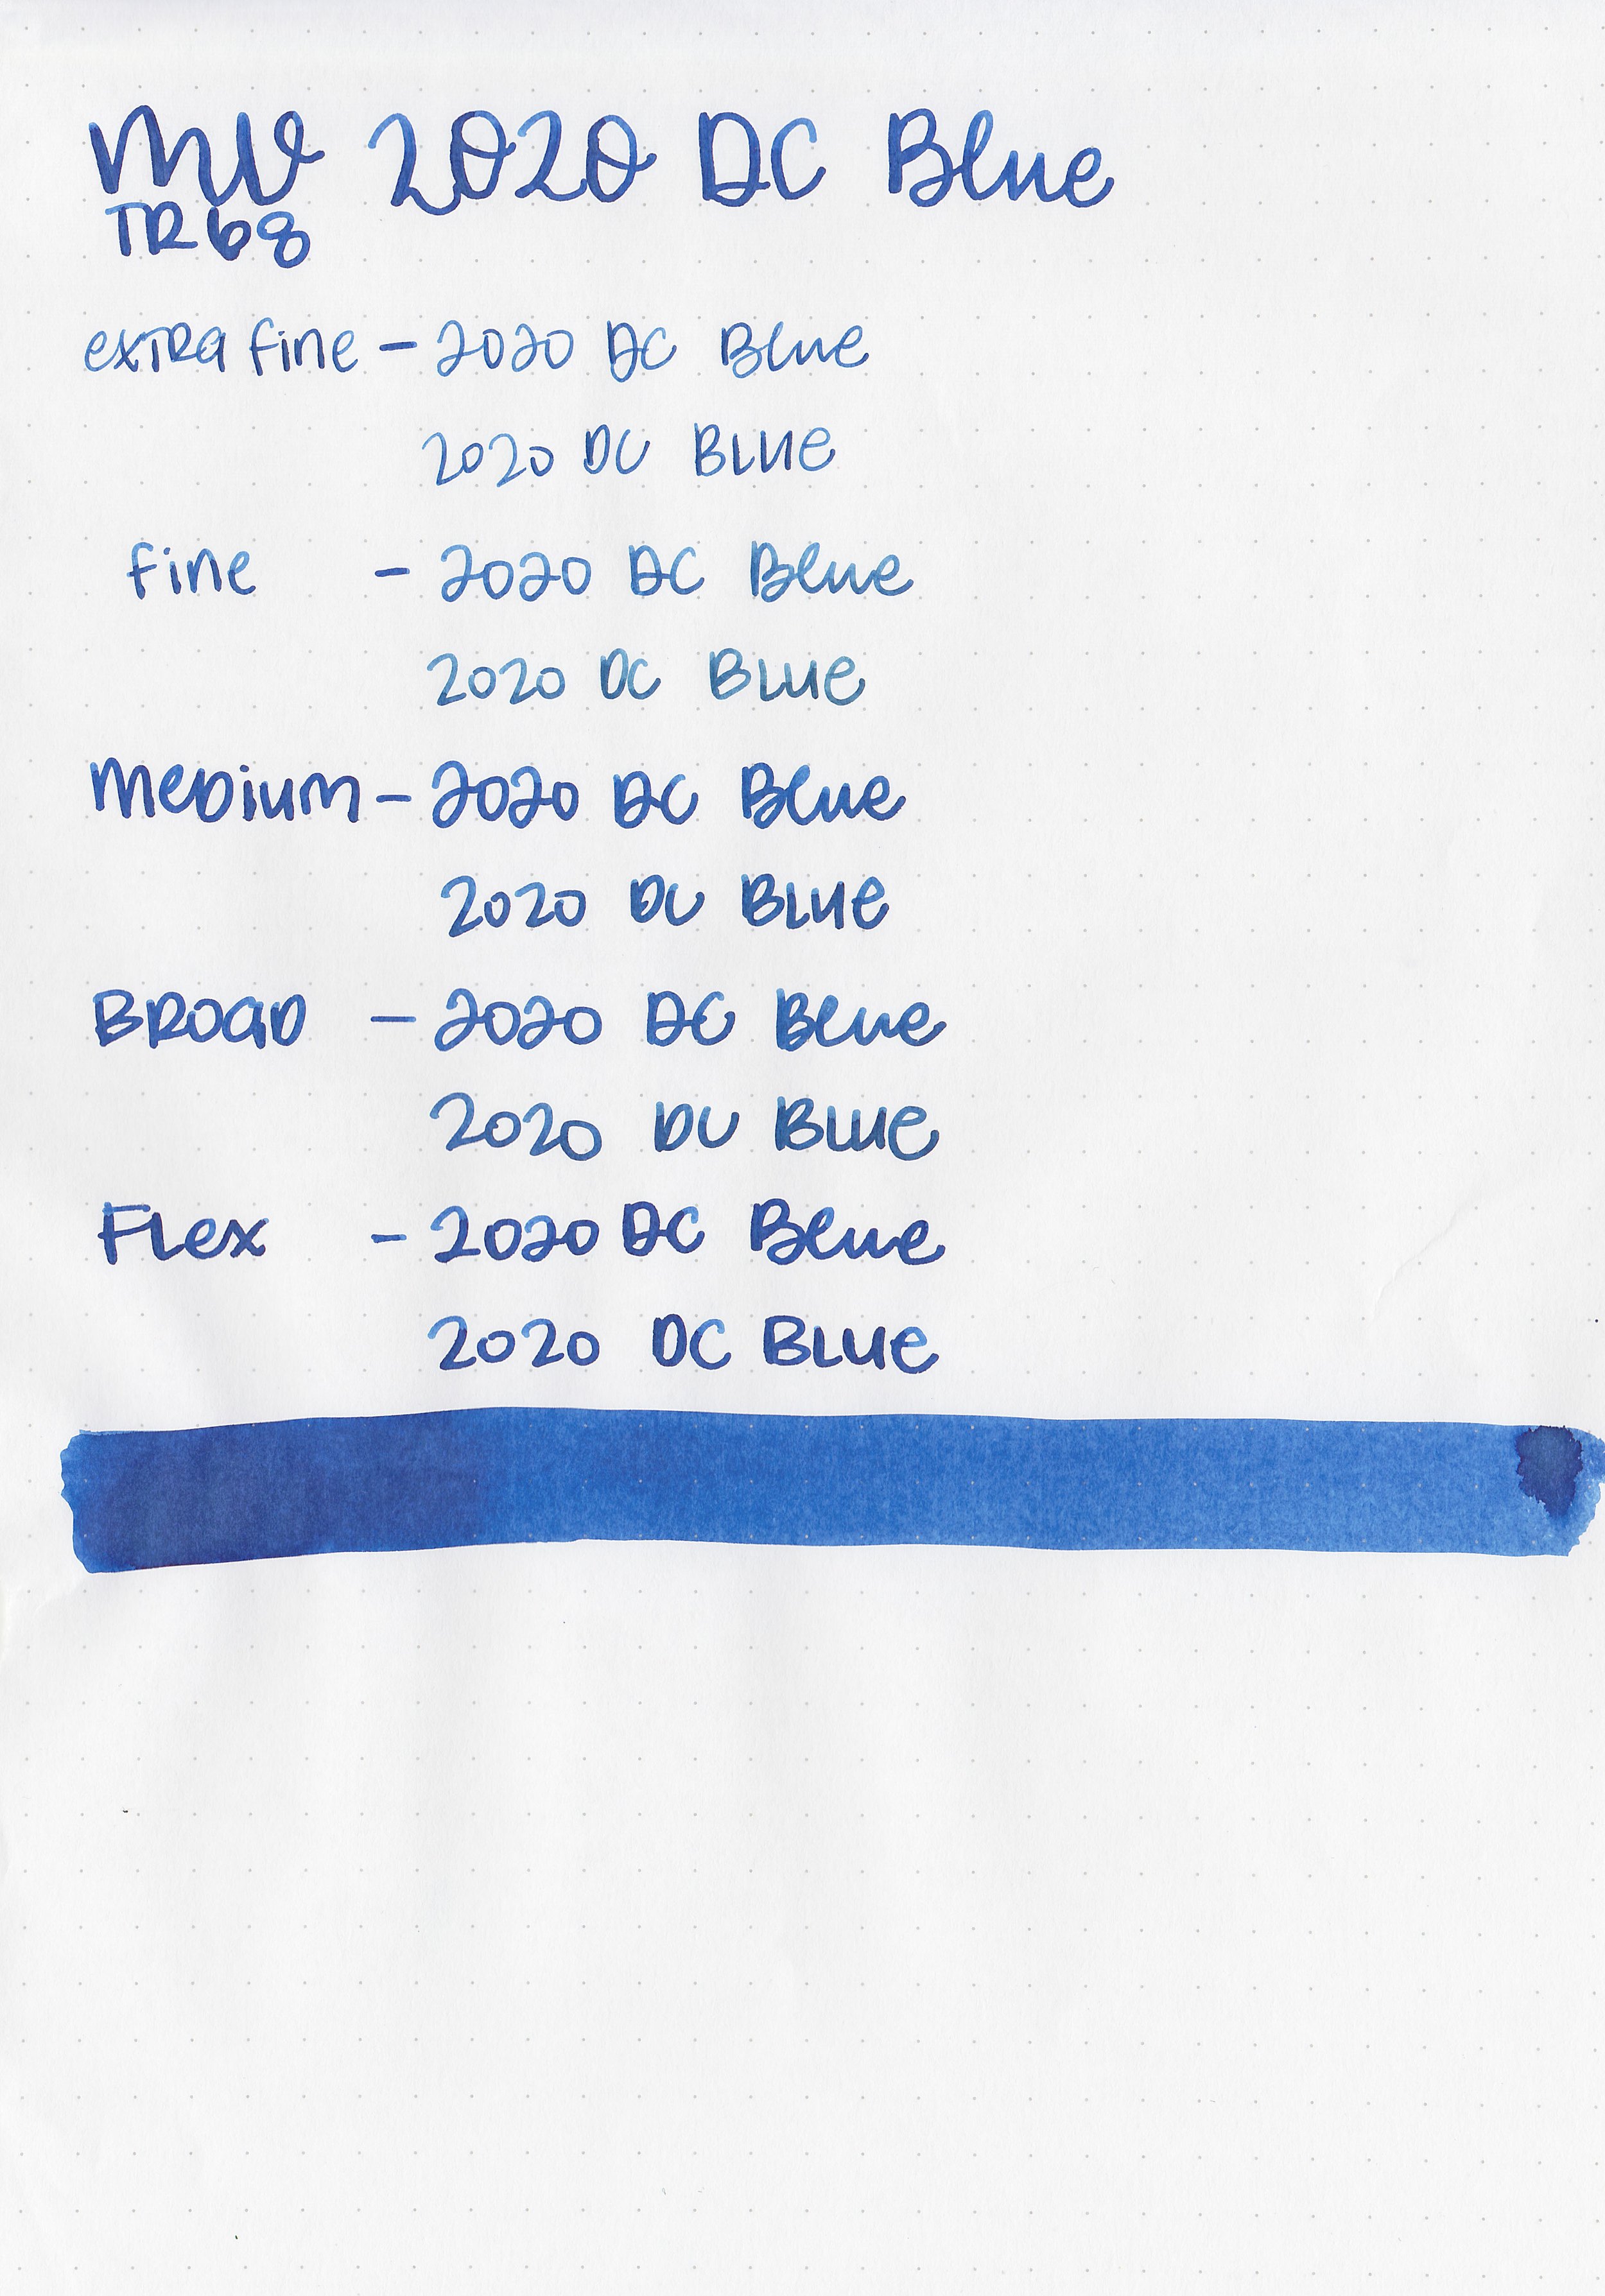 MV 2020 DC Blue
TR68
extra fine - 2020 DC Blue
2020 DC Blue
fine - 2020 DC Blue
2020 DC Blue
Medium - 2020 DC Blue
2020 DC Blue
Broad - 2020 DC Blue
2020 DC Blue
Flex - 2020 DC Blue
2020 DC Blue